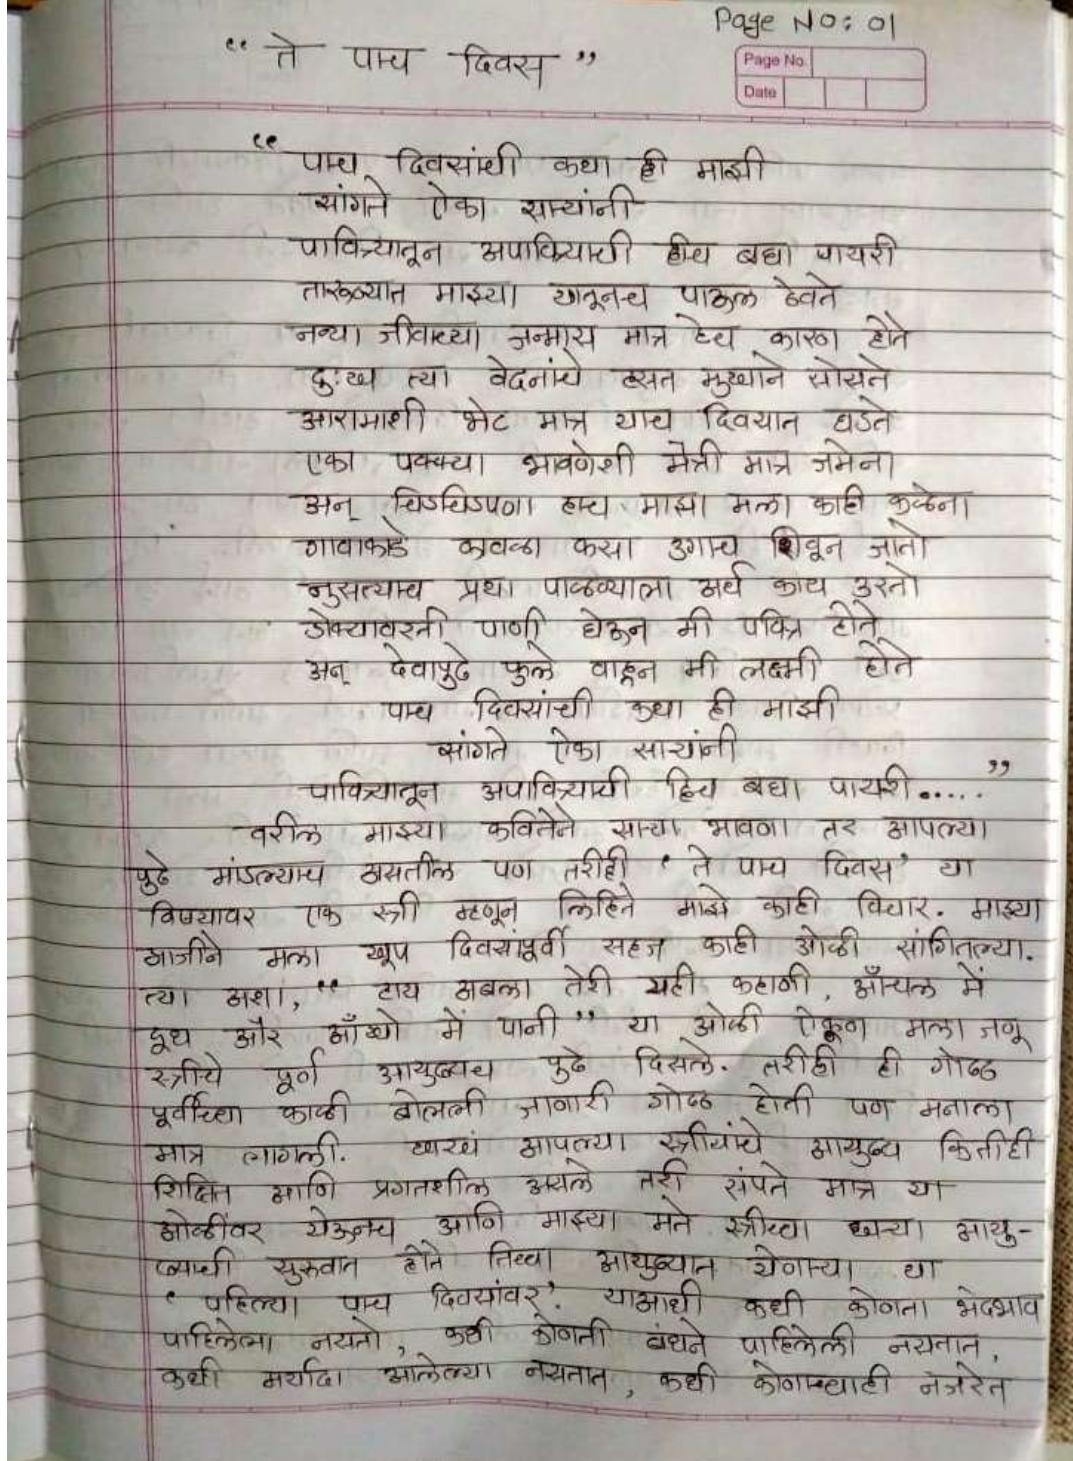 Page No: 01
Page No.
Date
“ ते पाच दिवस ”
“ पाच दिवसांची कथा ही माझी
सांगते ऐका साऱ्यांनी
पावित्र्यातून अपावित्र्याची हीच बघा पायरी
तारूण्यात माझ्या यातूनच पाऊल ठेवते
नव्या जीवाच्या जन्मास मात्र हेच कारण होते
दुःख त्या वेदनांचे हसत मुखाने सोसते
आरामाशी भेट मात्र याच दिवसात घडते
एका पक्क्या भावणेशी मैत्री मात्र जमेना
अन् चिडचिडपणा हाच माझा मला काही कळेना
गावाकडे कावळा कसा उगाच शिवून जातो
नुसत्याच प्रथा पाळण्याला अर्थ काय उरतो
डोक्यावरनी पाणी घेऊन मी पवित्र होते
अन् देवापुढे फुले वाहून मी लक्ष्मी होते
पाच दिवसांची कथा ही माझी
सांगते ऐका साऱ्यांनी
पावित्र्यातून अपावित्र्याची हिच बघा पायरी..... ”
वरील माझ्या कवितेने साऱ्या भावणा तर आपल्या
पुढे मांडल्याच असतील पण तरीही ‘ ते पाच दिवस’ या
विषयावर एक स्त्री म्हणून लिहिते माझे काही विचार. माझ्या
आजीने मला खूप दिवसांपूर्वी सहज काही ओळी सांगितल्या.
त्या अशा, “ हाय अबला तेरी यही कहाणी, आँचल में
दूध और आँखो में पानी ” या ओळी ऐकूण मला जणू
स्त्रीचे पूर्ण आयुष्यच पुढे दिसले. तरीही ही गोष्ठ
पूर्वीच्या काळी बोलली जाणारी गोष्ठ होती पण मनाला
मात्र लागली. खरचं आपल्या स्त्रीयांचे आयुष्य कितीही
शिक्षित आणि प्रगतशील असले तरी संपते मात्र या
ओळींवर येऊनच आणि माझ्या मते स्त्रीच्या खऱ्या आयु-
ष्याची सुरुवात होते तिच्या आयुष्यात येणाऱ्या या
‘ पहिल्या पाच दिवसांवर’. याआधी कधी कोणता भेदभाव
पाहिलेला नसतो, कधी कोणती बंधने पाहिलेली नसतात,
कधी मर्यादा आलेल्या नसतात, कधी कोणाच्याही नजरेत